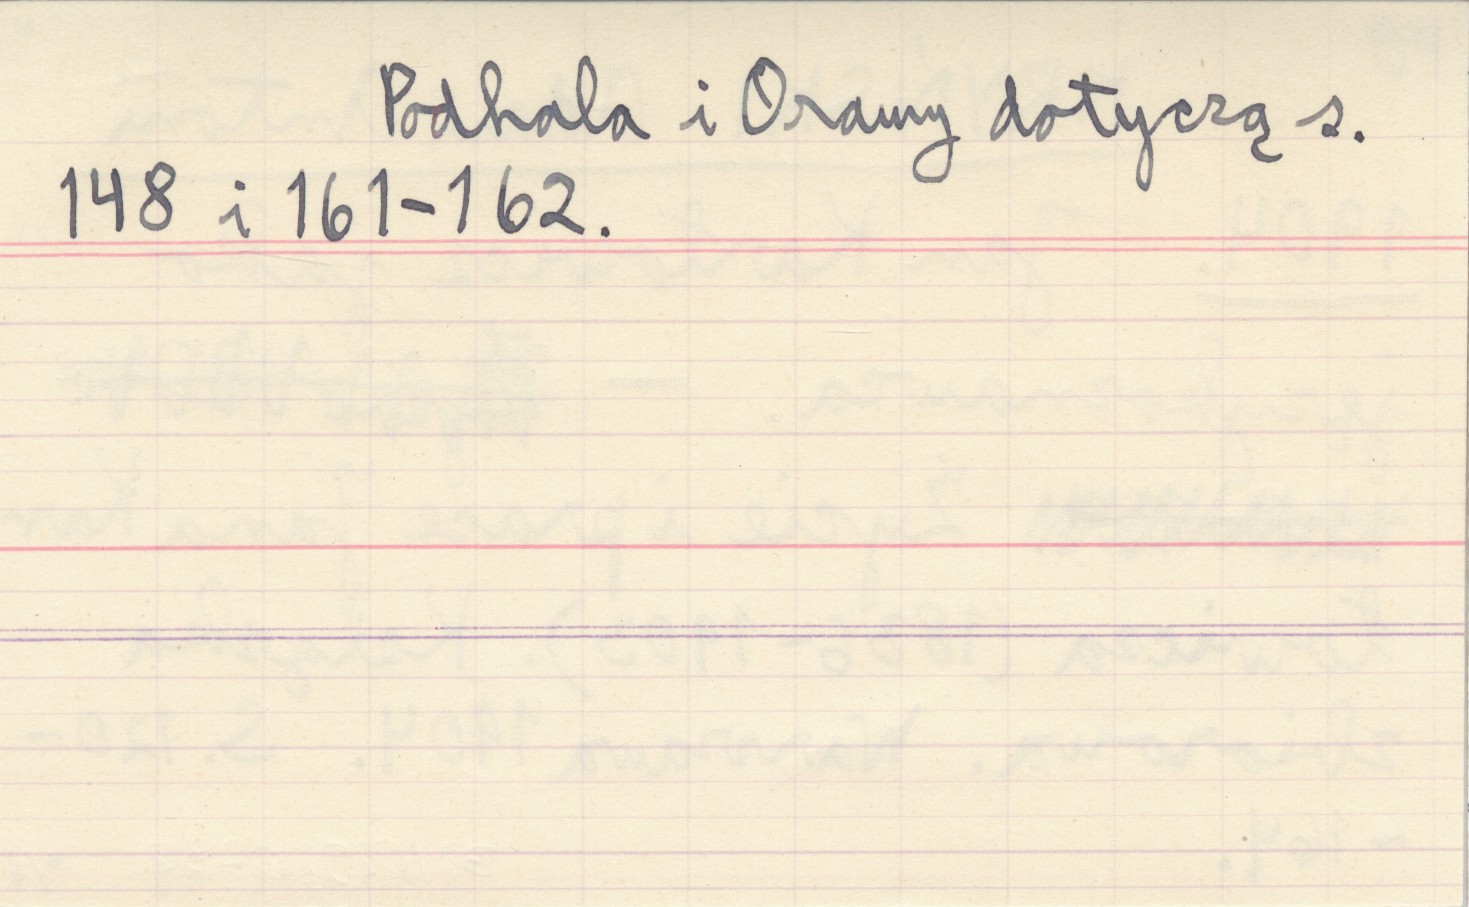 Podhala i Orawy dotyczą s.
148 i 161-162.